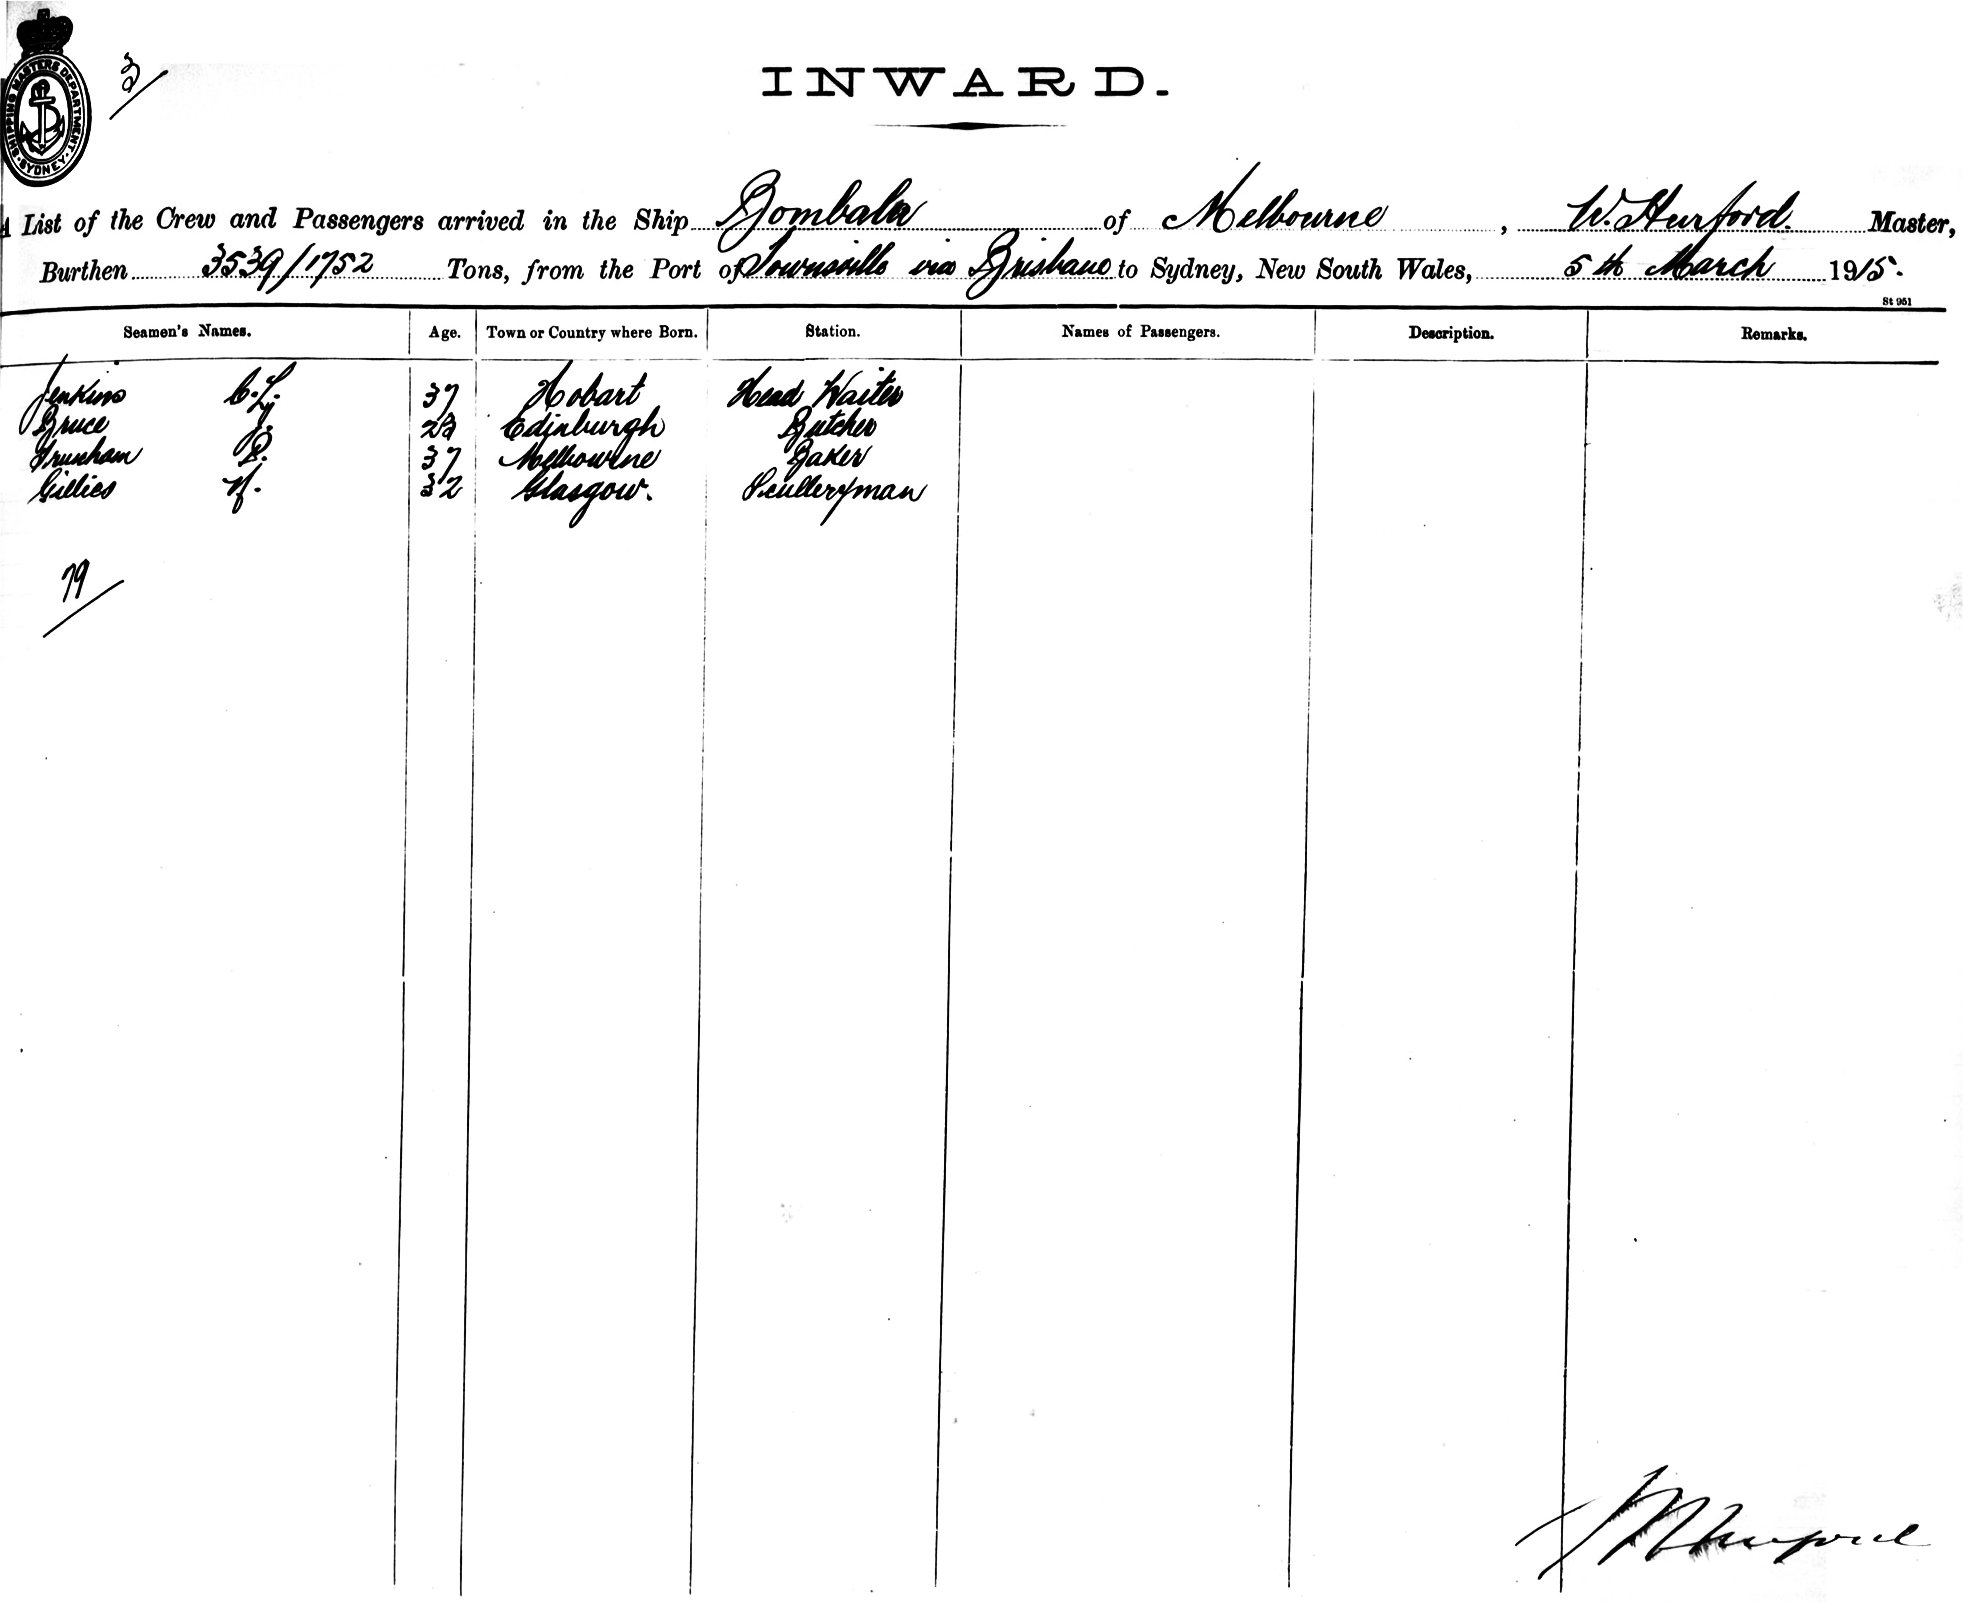 SHIPPING MASTERS DEPARTMENT · SYDNEY ·
3
INWARD.
A List of the Crew and Passengers arrived in the Ship Bombala of Melbourne, W. Hurford. Master,
Burthen 3539/1752 Tons, from the Port of Townsville via Brisbane to Sydney, New South Wales, 5th March 1915.
St 951
Seamen's Names. Age. Town or Country where Born. Station. Names of Passengers. Description. Remarks.
Jenkins C.L. 37 Hobart Head Waiter
Bruce 23 Edinburgh Butcher
37 Melbourne Baker
Gillies 32 Glasgow. Sculleryman
79